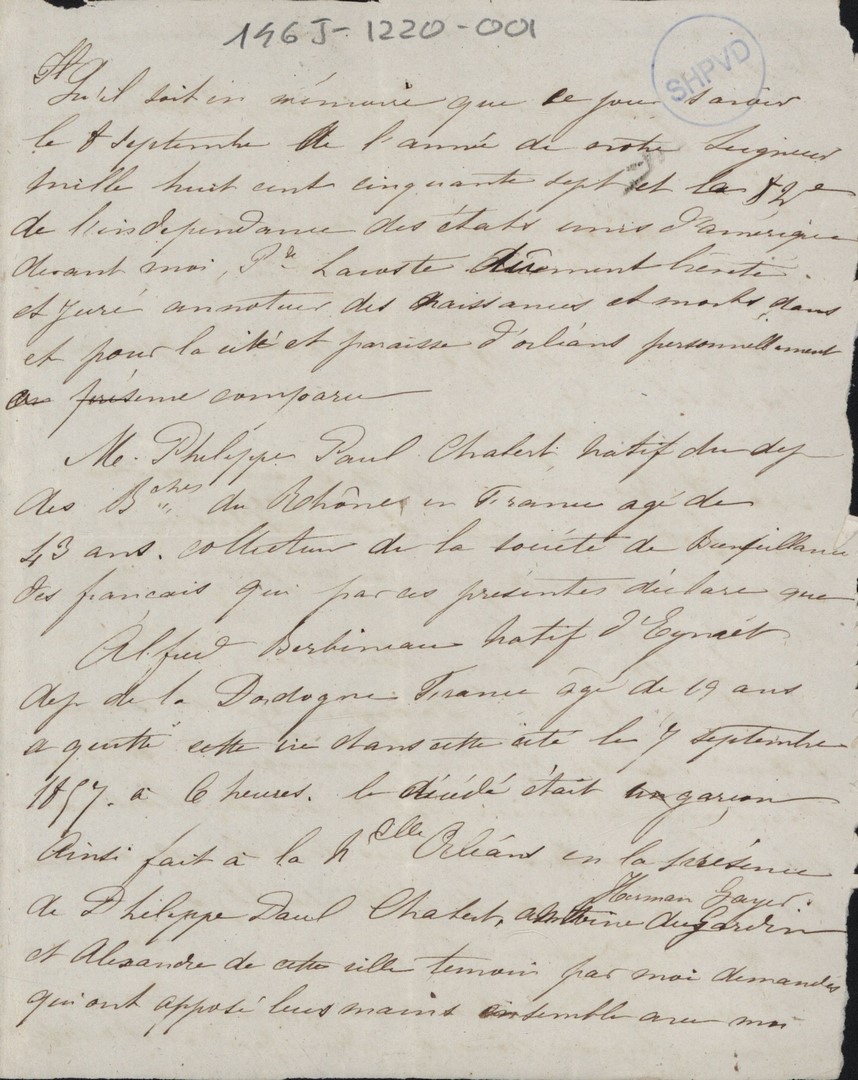 146J-1220-001
SHPVD
Qu'il soit en mémoire que ce jour savoir
le 8 septembre de l'année de notre Seigneur
mille huit cent cinquante sept et la 82e
de l'indépendance des états unis d'amérique
devant moi, Pre Lacoste dûment
et juré annoteur des naissances et morts, dans
et pour la cité et paroisse d'orléans personnellement
comparu
M. Philippe Paul Chabert natif du dep
des Bches du Rhône en France agé de
43 ans. collecteur de la société de Bienfaillance
des francais qui par ces présentes déclare que
Alfred Berbineau natif d'Eymet
dep de la Dordogne France âgé de 19 ans
a quitté cette vie dans cette cité le 7 septembre
1857. a 6 heures. le décédé était garçon
Ainsi fait à la Nelle Orléans en la présence
Herman
de Philippe Paul Chabert, antoine dugardin
et Alexandre de cette ville temoin par moi demandés
qui ont apposé leurs mains ensemble avec moi